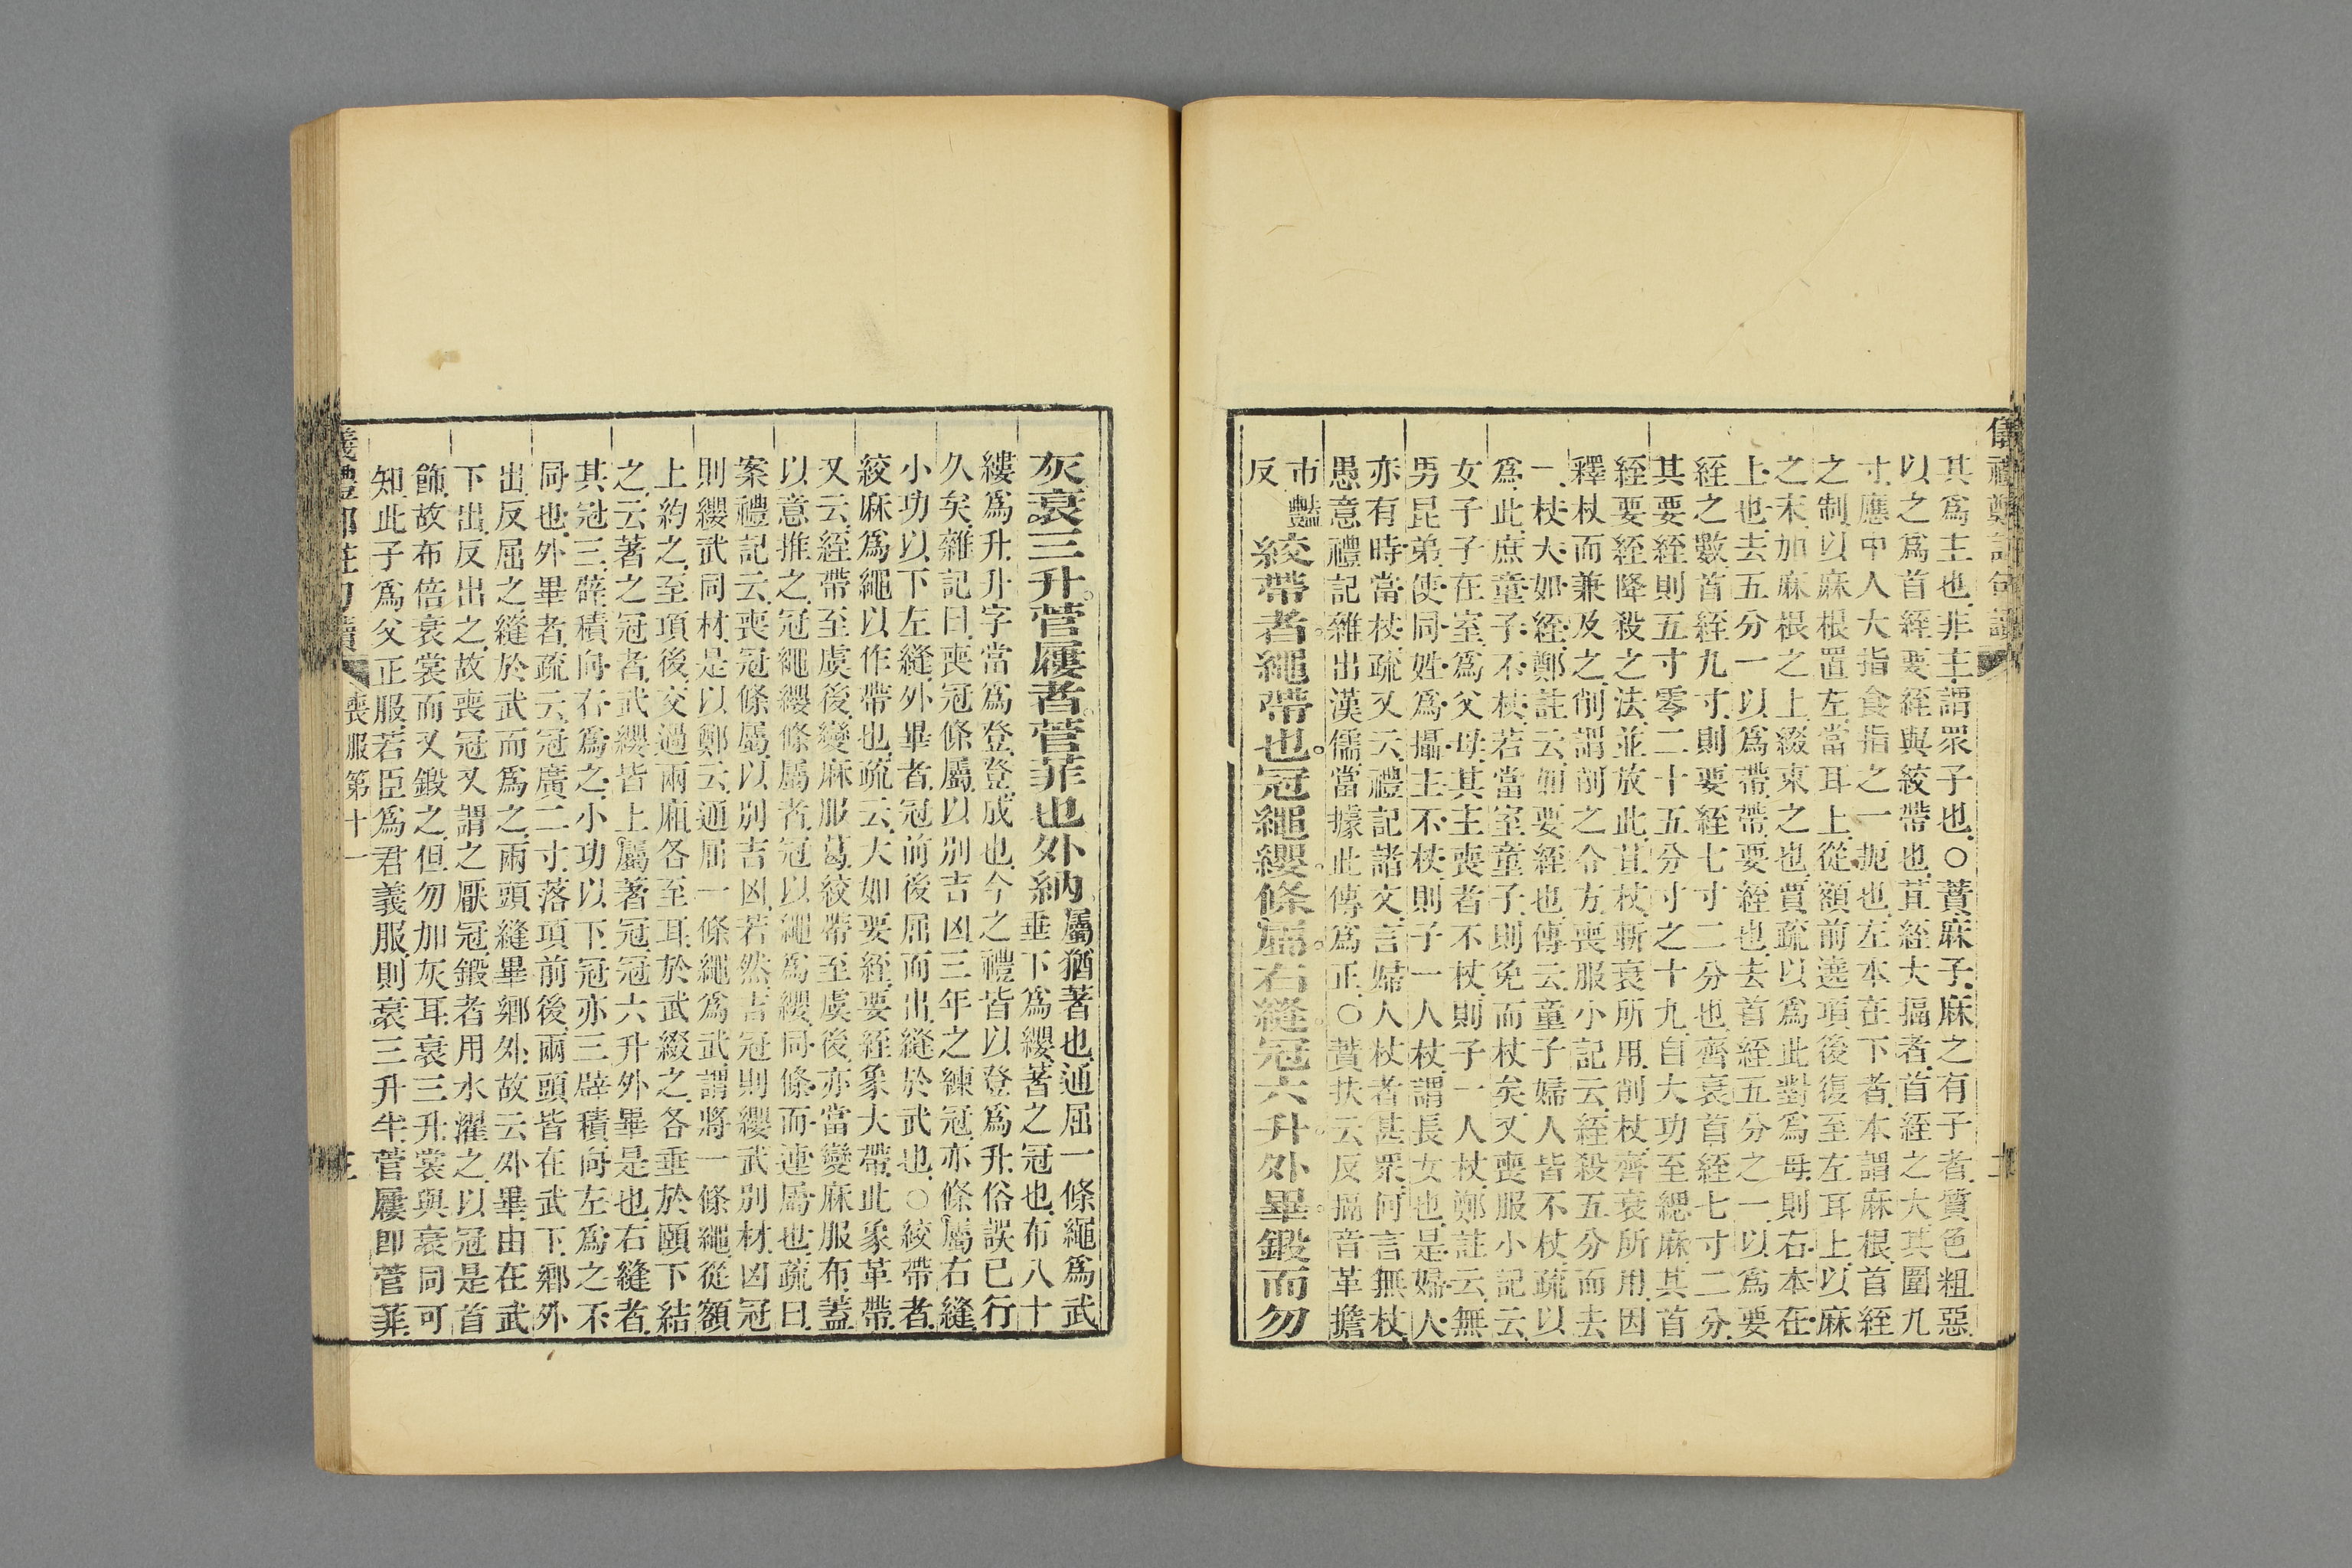 儀禮鄭註句讀
其爲主也非主謂眾子也○蕡麻子麻之有子者質色粗惡
以之爲首絰要絰與絞帶也苴絰大搹者首絰之大其圍九
寸應中人大指食指之一扼也左本在下者本謂麻根首絰
之制以麻根置左當耳上從額前遶項後復至左耳上以麻
之末加麻根之上綴束之也賈疏以爲此對爲母則右本在
上也去五分一以爲帶帶要絰也去首絰五分之一以爲要
絰之數首絰九寸則要絰七寸二分也齊衰首絰七寸二分
其要絰則五寸零二十五分寸之十九自大功至緦麻其首
絰要絰降殺之法並放此苴杖斬衰所用削杖齊衰所用因
釋杖而兼及之削謂削之令方喪服小記云絰殺五分而去
一杖大如絰鄭註云如要絰也傳云童子婦人皆不杖疏以
爲此庶童子不杖若當室童子則免而杖矣又喪服小記云
女子子在室爲父母其主喪者不杖則子一人杖鄭註云無
男昆弟使同姓爲攝主不杖則子一人杖謂長女也是婦人
亦有時當杖疏又云禮記諸文言婦人杖者甚眾何言無杖
愚意禮記雜出漢儒當據此傳爲正○蕡扶云反搹音革擔
市豔
反
絞帶者繩帶也冠繩纓條屬右縫冠六升外畢鍛而勿
灰衰三升菅屨者菅菲也外納
屬猶著也通屈一條繩爲武
垂下爲纓著之冠也布八十
縷爲升升字當爲登登成也今之禮皆以登爲升俗誤已行
久矣雜記曰喪冠條屬以別吉凶三年之練冠亦條屬右縫
小功以下左縫外畢者冠前後屈而出縫於武也○絞帶者
絞麻爲繩以作帶也疏云大如要絰要絰象大帶此象革帶
又云絰帶至虞後變麻服葛絞帶至虞後亦當變麻服布蓋
以意推之冠繩纓條屬者冠以繩爲纓同條而連屬也疏曰
案禮記云喪冠條屬以別吉凶若然吉冠則纓武別材凶冠
則纓武同材是以鄭云通屈一條繩爲武謂將一條繩從額
上約之至項後交過兩廂各至耳於武綴之各垂於頤下結
之云著之冠者武纓皆上屬著冠冠六升外畢是也右縫者
其冠三辟積向右爲之小功以下冠亦三辟積向左爲之不
同也外畢者疏云冠廣二寸落項前後兩頭皆在武下鄉外
出反屈之縫於武而爲之兩頭縫畢鄉外故云外畢由在武
下出反出之故喪冠又謂之厭冠鍛者用水濯之以冠是首
飾故布倍衰裳而又鍛之但勿加灰耳衰三升裳與衰同可
知此子爲父正服若臣爲君義服則衰三升半菅屨卽菅菲
喪服第十一